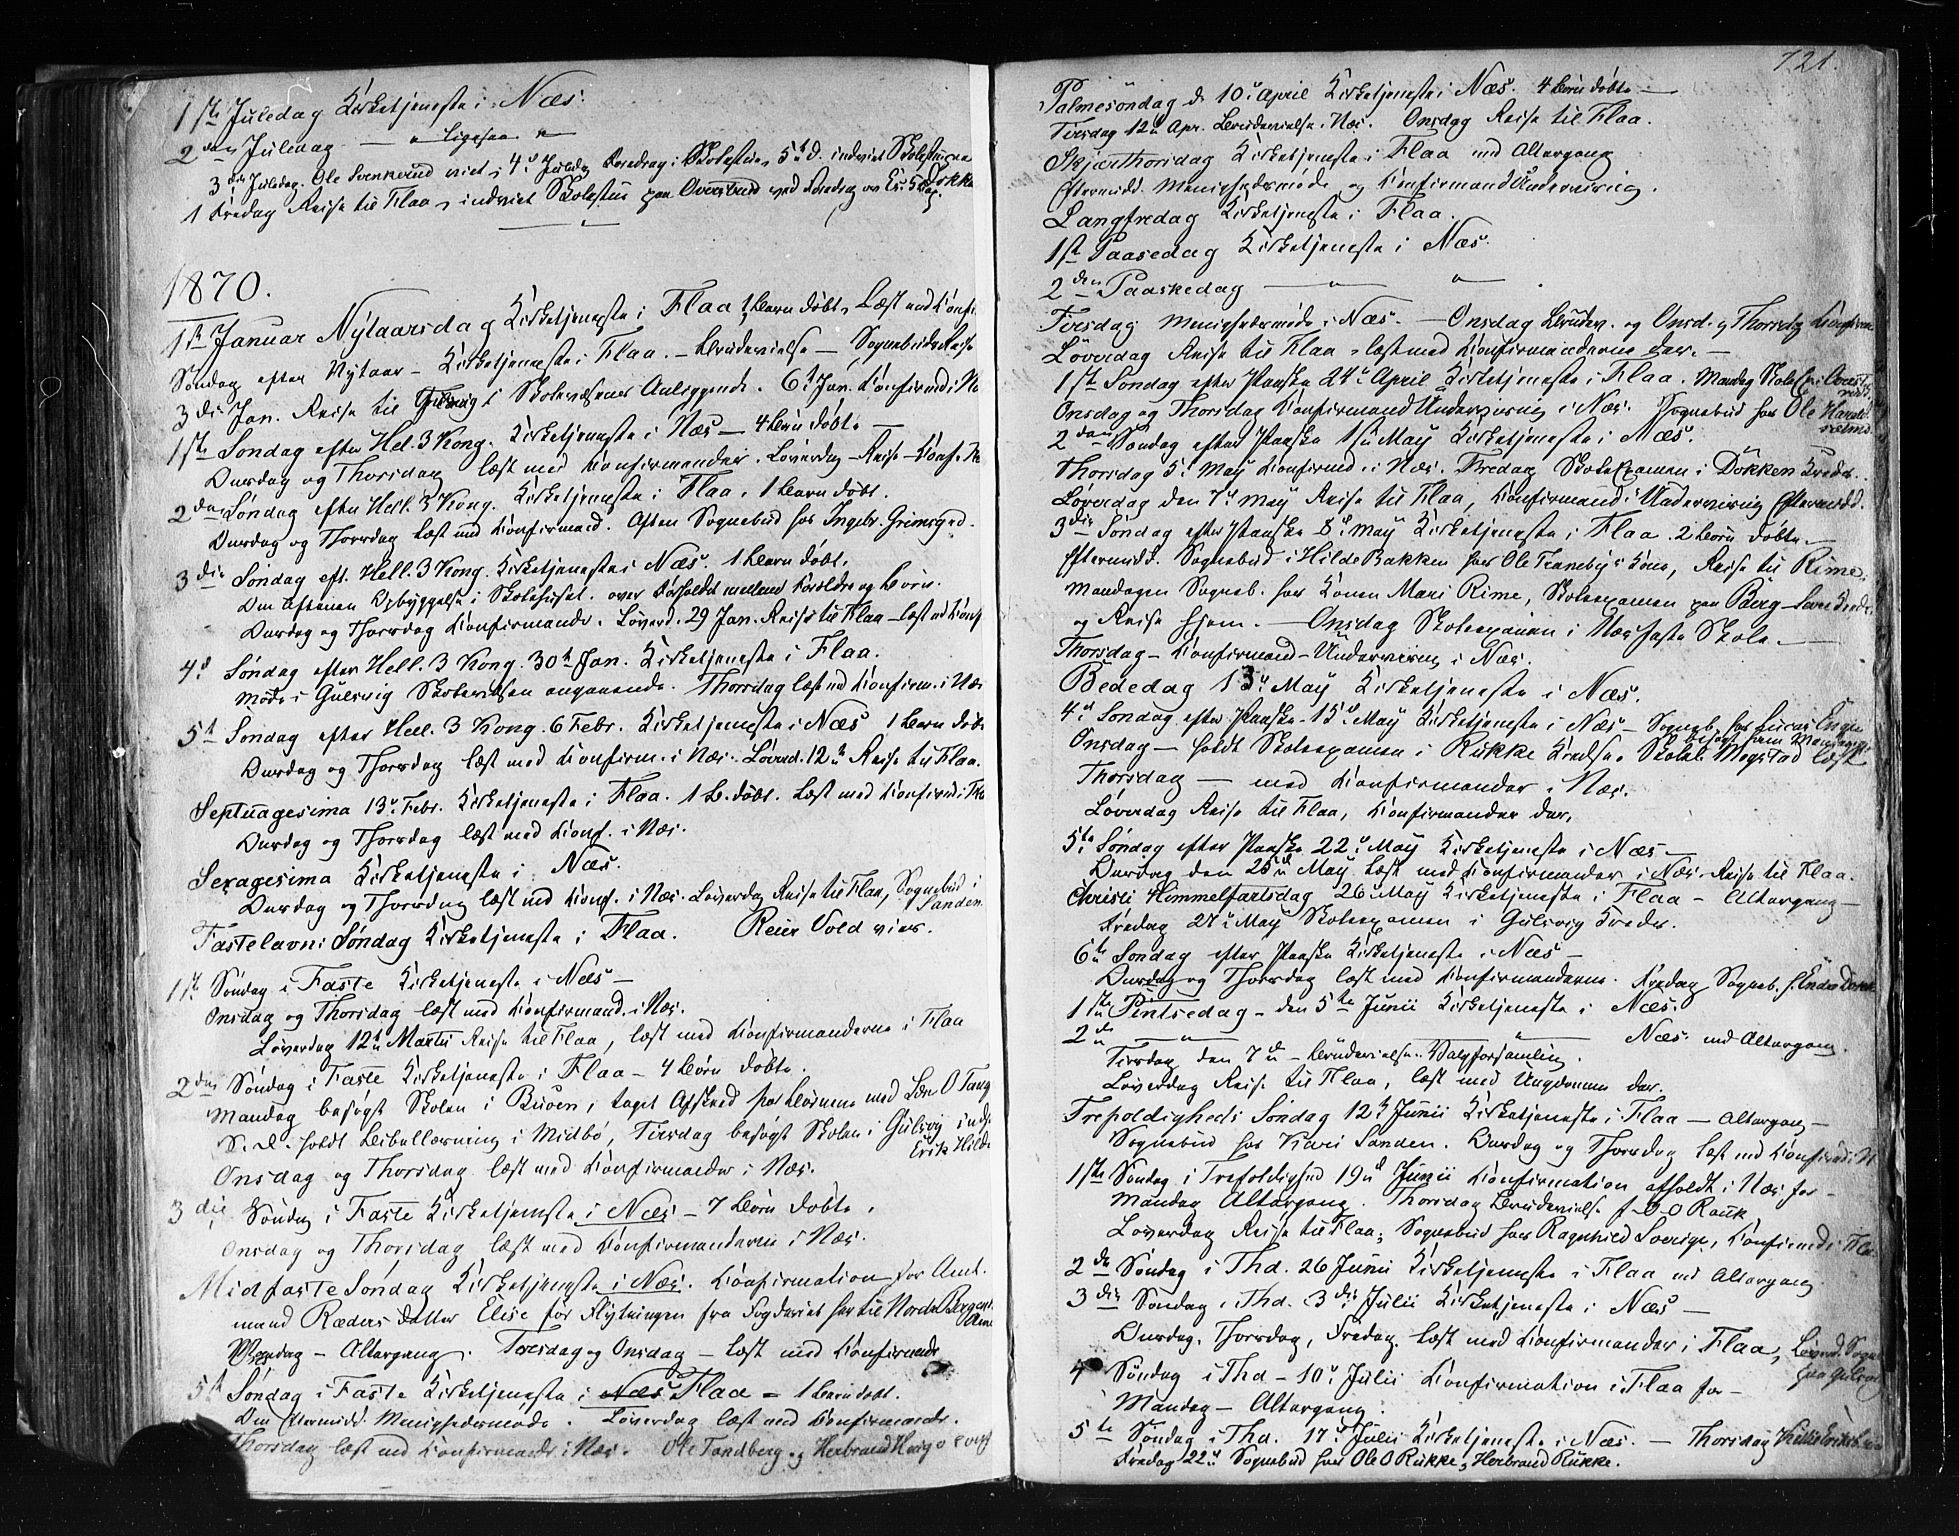 1ste Juledag Kirketjeneste i Næs.
2den Juledag — " ligesaa "
3die Juledag. Ole Svenkerud viet, 4de Juledag Foredrag i Skolestuen 5te d. indviet Skolestuen
Dokke
1 Fredag Reise til Flaa, indviet Skolestue paa Aversbrud ved Foredrag over
1870.
1ste Januar Nytaarsdag Kirketjeneste i Flaa 1 Barn døbt, Læst med Konfi.
Søndag efter Nytaar – Kirketjeneste i Flaa. – Brudevielse – Sognebuds Reise
3die Jan. Reise til Gulsvig i Skolevæsenes Anliggende. 6te Jan. Konfirmd. i Næs
1ste Søndag efter Hel. 3 Kong. Kirketjeneste i Næs – 4 Børn døbte –
Onsdag og Thorsdag læst med Konfirmander. Løverdag – Reise – Konf.
2den Søndag efter Hell. 3 Kong. Kirketjeneste i Flaa. 1 Barn døbt.
Onsdag og Thorsdag læst med Konfirmand. Aften Sognebud hos Ingebr. Grimsgrd.
3die Søndag eft. Hell. 3 Kong. Kirketjeneste i Næs. 1 Barn døbt.
Om Aftenen Opbyggelse i Skolehuset. over Forholdet mellem Forældre og Børn.
Onsdag og Thorsdag Konfirmande. Løverd. 29 Jan. Reise til Flaa – læst m Konf
4de Søndag efter Hell. 3 Kong. 30te Jan. Kirketjeneste i Flaa.
Møde i Gulsvig Skolevæsen angaaende. Thorsdag læst m Konfirm. i Næs
5te Søndag efter Hell. 3 Kong. 6 Febr. Kirketjeneste i Næs 1 Barn døbt
Onsdag og Thorsdag læst med Konfirm. i Næs. Løverd. 12te Reise til Flaa.
Septuagesima 13de Febr. Kirketjeneste i Flaa. 1 B. døbt. Læst med Konfirmd. i Flaa
Onsdag og Thorsdag læst med Konf. i Næs.
Sexagesima Kirketjeneste i Næs.
Onsdag og Thorsdag læst med Konf. i Næs. Løverdag Reise til Flaa, Sognebud i
Sanden
Fastelavns Søndag Kirketjeneste i Flaa. Reier Vold vies.
1ste Søndag i Faste Kirketjeneste i Næs –
Onsdag og Thorsdag læst med Konfirmand. i Næs.
Løverdag 12te Martii Reise til Flaa, læst med Konfirmanderne i Flaa
2den Søndag i Faste Kirketjeneste i Flaa – 4 Børn døbte.
Mandag besøgt Skolen i Buøen, taget Afsked fra Børnene med O Tang
S. D. holdt Bibellæsning i Midbø, Tirsdag besøgt Skolen i Gulsvig inds.
Erik Hilde
Onsdag og Thorsdag læst med Konfirmander i Næs.
3die Søndag i Faste Kirketjeneste i Næs – 7 Børn døbte.
Onsdag og Thorsdag læst med Konfirmanderne i Næs.
Midfaste Søndag Kirketjeneste i Næs. Konfirmation for Amt.
mand Ræders Datter Elise før Flytningen fra Fogderiet her til Nordre Bergenh.
Amt
Mandag – Altergang. Tirsdag og Onsdag – læst med Konfirmande
5te Søndag i Faste Kirketjeneste i Næs Flaa – 1 Barn døbt.
Om Eftermidd. Menighedsmøde. Løverdag læst med Konfirmande.
Thorsdag læst med Konfirmande i Næs. Ole Tandberg og Herbrand
721.
Palmesøndag d. 10de April Kirketjeneste i Næs. 4 Børn døbte –
Tirsdag 12te Apr. Brudevielse i Næs. Onsdag Reise til Flaa.
Skjærthorsdag Kirketjeneste i Flaa med Altergang
Eftermidd. Menighedsmøde og Konfirmand Underviisning.
Langfredag Kirketjeneste i Flaa.
1ste Paasedag Kirketjeneste i Næs.
2den Paaskedag — " — " .
Tirsdag Menighedsmøde i Næs. – Onsdag Brudev. og Onsd. og Thorsdag Konfirm
Løverdag Reise til Flaa – læst med Konfirmanderne der. –
1ste Søndag efter Paaske 24de April Kirketjeneste i Flaa. Mandag Skole Ex. i Avers
rud.
Onsdag og Thorsdag Konfirmand Underviisning i Næs. Sognebud hos Ole Harald
2den Søndag efter Paaske 1ste May Kirketjeneste i Næs.
Thorsdag 5te May Konfirmd. i Næs. Fredag Skole Examen i Dökken Kreds.
Løverdag den 7de May Reise til Flaa, Konfirmand Underviisning Eftermidd.
3die Søndag efter Paaske 8de May Kirketjeneste i Flaa 2 Børn døbte –
Eftermidd. Sognebud i Hilde Bakken hos Ole Tranebys Kone, Reise til Rime.
Mandagen Sogneb. hos Konen Mari Rime, Skoleexamen paa Berg –
og Reise hjem. – Onsdag Skoleexamen i Næs faste Skole –
Thorsdag – Konfirmand-Underviisning i Næs.
Bededag 13de May Kirketjeneste i Næs.
4de Søndag efter Paaske – 15de May Kirketjeneste i Næs – Sogneb. hos Lucas Engen
Onsdag – holdt Skoleexamen i Rukke Kreds – Skolel. Mogstad læst
Thorsdag – med Konfirmander i Næs.
Løverdag Reise til Flaa, Konfirmander der.
5te Søndag efter Paaske 22de May Kirketjeneste i Næs –
Onsdag den 25de May læst med Konfirmander i Næs. Reise til Flaa.
Christi Himmelfartsdag 26de May Kirketjeneste i Flaa – Altergang –
Fredag 27de May Skoleexamen i Gulsvig Kreds.
6te Søndag efter Paaske Kirketjeneste i Næs –
Onsdag og Thorsdag læst med Konfirmanderne. Fredag Sogneb. h. Endre Dokk
1ste Pintsedag – den 5te Junii Kirketjeneste i Næs.
2den — " — " — Næs med Altergang.
Tirsdag den 7de – Brudevielse. Valgforsamling.
Løverdag Reise til Flaa, læst med Ungdommen der.
Trefoldigheds Søndag 12te Junii Kirketjeneste i Flaa – Altergang –
Sognebud hos Kari Sanden. Onsdag og Thorsdag læst med Konfirmd. i N
1ste Søndag i Trefoldighed 19de Junii Konfirmation afholdt i Næs for –
Mandag Altergang. Thorsdag Brudevielse f. O O Rauk
Løverdag Reise til Flaa, Sognebud hos Ragnhild Sverige, Konfirmd. i Flaa
2den Søndag i Thd. 26 Junii Kirketjeneste i Flaa med Altergang
3die Søndag i Thd. 3die Julii Kirketjeneste i Næs –
Onsdag, Thorsdag, Fredag læst med Konfirmander i Flaa, Løverd. Sogn
paa Gulsvig
4 Søndag i Thd – 10de Julii Konfirmation i Flaa for –
Mandag – Altergang.
5te Søndag i Thd. 17de Julii Kirketjeneste i Næs. – Thorsdag
Fredag 22de Sognebud hos Ole O Rukke, Herbrand Rukke.